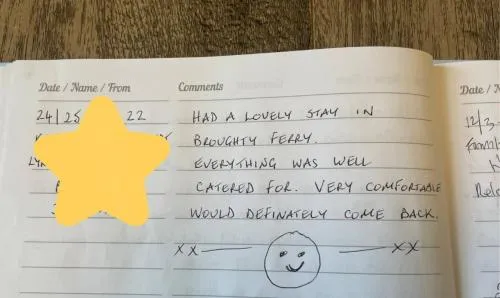 Date / Name / From
Comments
24/25 22
HAD A LOVELY STAY IN
BROUGHTY FERRY.
EVERYTHING WAS WELL
CATERED FOR. VERY COMFORTABLE
WOULD DEFINATELY COME BACK.
XX XX
Date / N
12/3